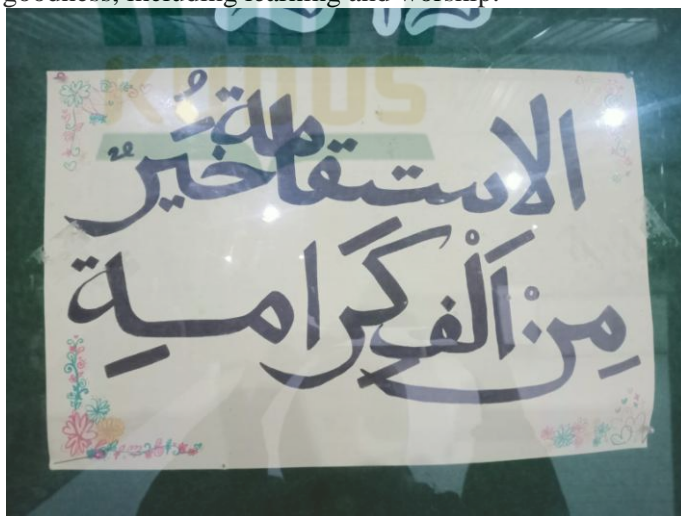 goodness, including learning and worship.
KUDUS
الاستقامةُ خَيْرٌ
مِنْ اَلْفِ كَرَامَةِ